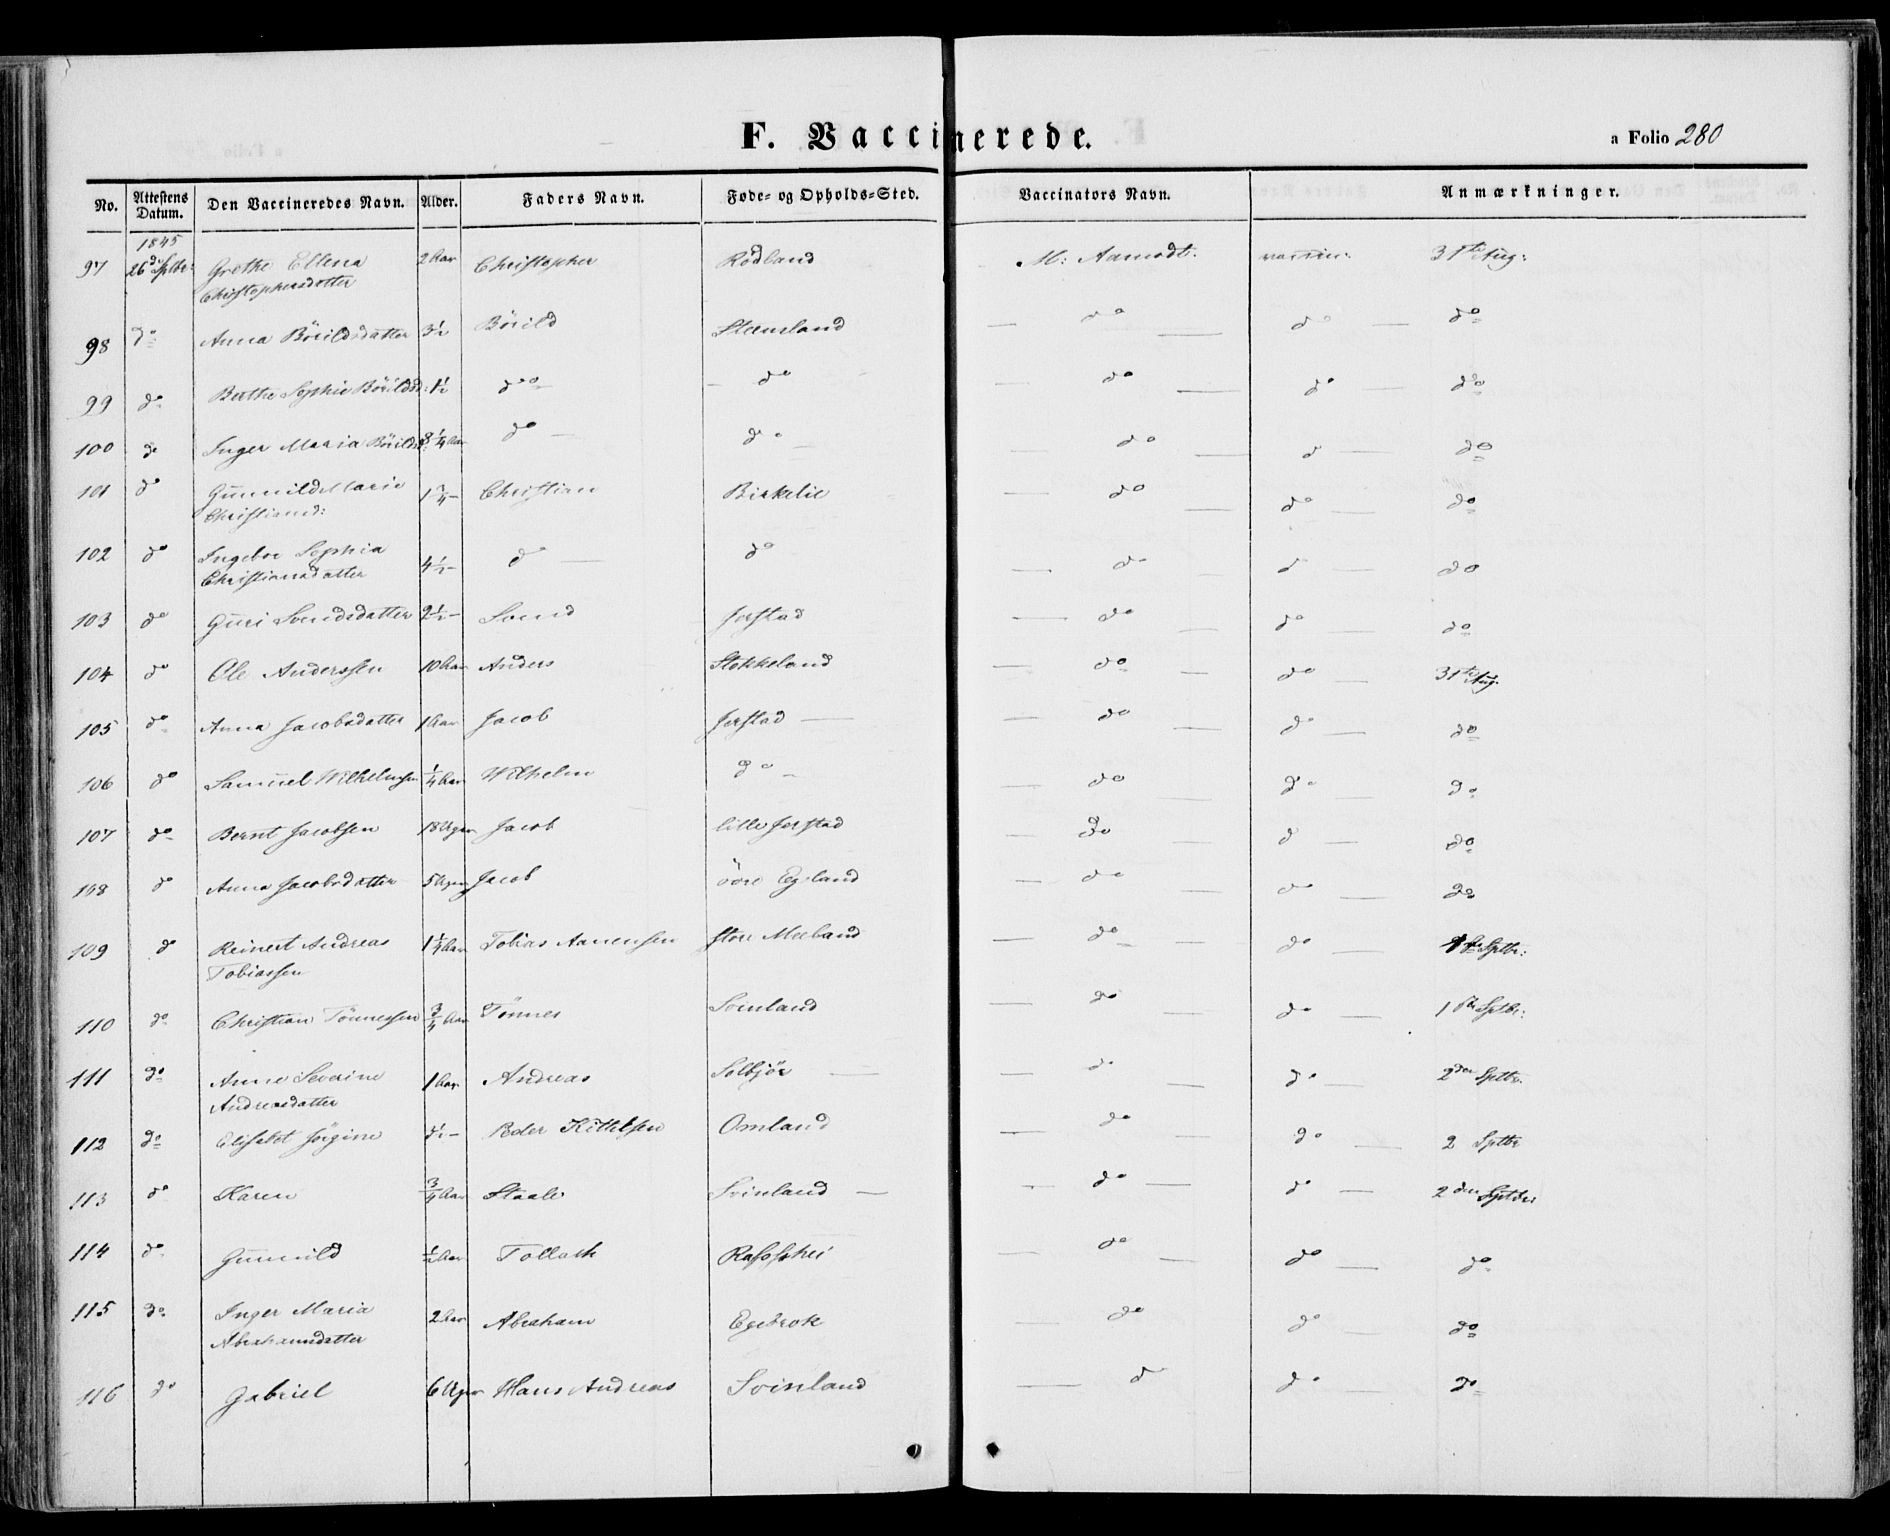 F. Vaccinerede.
a Folio 280
No. Attestens Datum. Den Vaccineredes Navn. Alder. Faders Navn. Føde- og Opholds-Sted. Vaccinators Navn. Anmærkninger.
1845
97 26de Sptbr: Grethe Ellena 2 Aar Christopher Rödland M: Aamodt: vaccin: 31te Aug:
Christophersdotter
98 do Anna Börildsdatter 3½ Börild Steensland — do — do — do
99 do Berthe Sophie Börildsd: 1½ do — do — do — do — do
100 do Inger Maria Börildsd: ¼ Aar do — do — — do — d — do
101 do Gunnild Marie 1¾ — Christian Birkelie — do — do — do
Christiansd:
102 do Ingebor Sophia
Christiansdatter 4½ — d — do — do — d — do
103 do Guri Svendsdatter 2½ — Svend Jerstad — do — do — do
104 do Ole Anderssen 10 Aar Anders Stokkeland — do — do — 31te Aug.
105 do Anna Jacobsdatter 1 Aar Jacob Jerstad — — do — do — do
106 do Samuel Wilhelmsen ¼ Aar Wilhelm do — — do — do — do
107 do Bernt Jacobsen 18 Uger Jacob lille Jerstad — do — d — do
108 do Anna Jacobsdatter 5 Uger Jacob övre Egeland — do — do — do
109 do Reinert Andreas 1¼ Aar Tobias Aanensen store Meeland — do — do — 1ste Sptbr:
Tobiassen
110 do Christian Tönnessen ¾ Aar Tönnes Svinland — do do — 1ste Sptbr:
111 do Anne Severine 1 Aar Andreas Solbjör — — do — do — 2den Sptbr.
Andreasdatter
112 do Elisabet Jörgine ½ — Peder Kittelsen Omland — do — do — 2 Sptbr
113 do Karen ¾ Aar Staale Svinland — — do — do — 2den Sptbr:
114 do Gunnild ½ Aar Tollack — do — do — do
115 do Inger Maria 2 Aar Abraham Egebrok — do — do — do
Abrahamsdatter
116 do Gabriel 6 Uger Hans Andreas Svinland — d — do — do